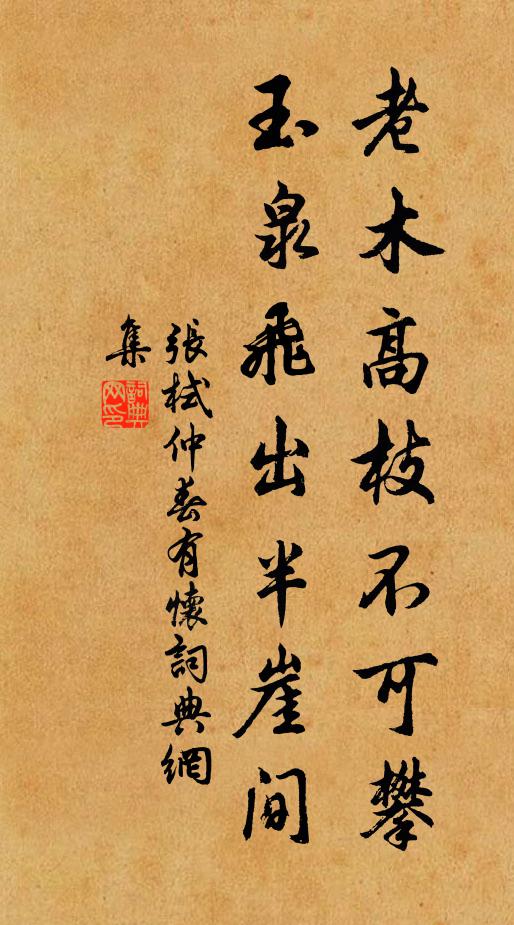 老木高枝不可攀
玉泉飛出半崖間
張栻仲春有懷詞典網
集
詞典
网印